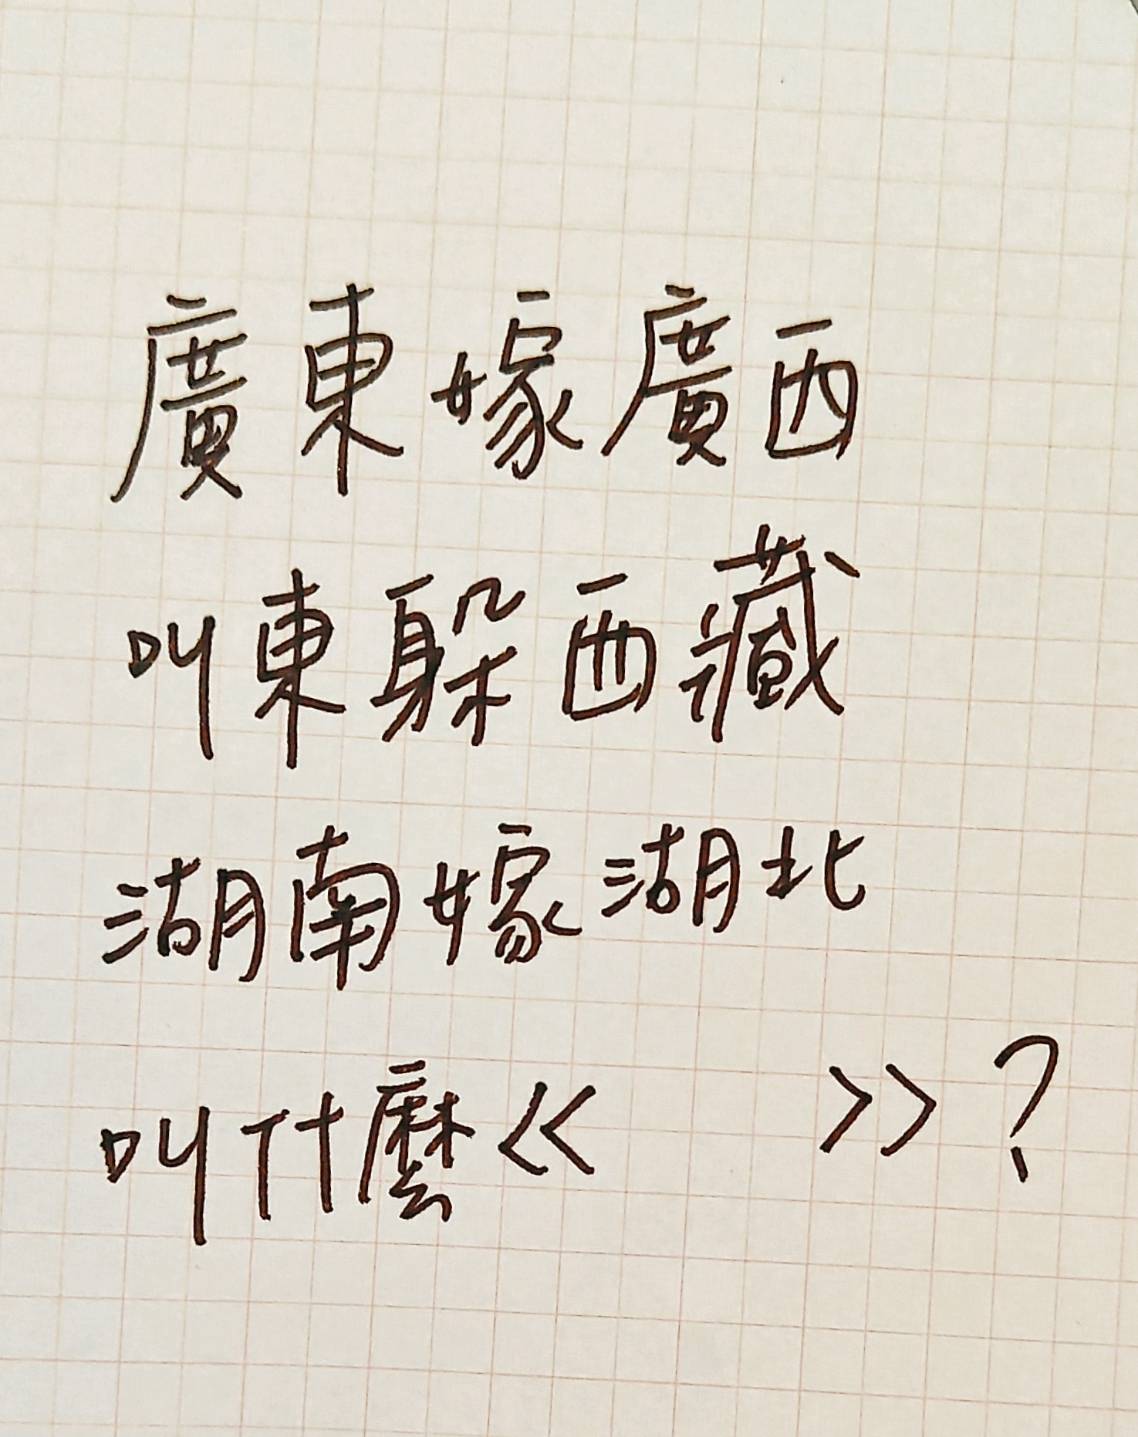 廣東嫁廣西
叫東躲西藏
湖南嫁湖北
叫什麼<< >>?